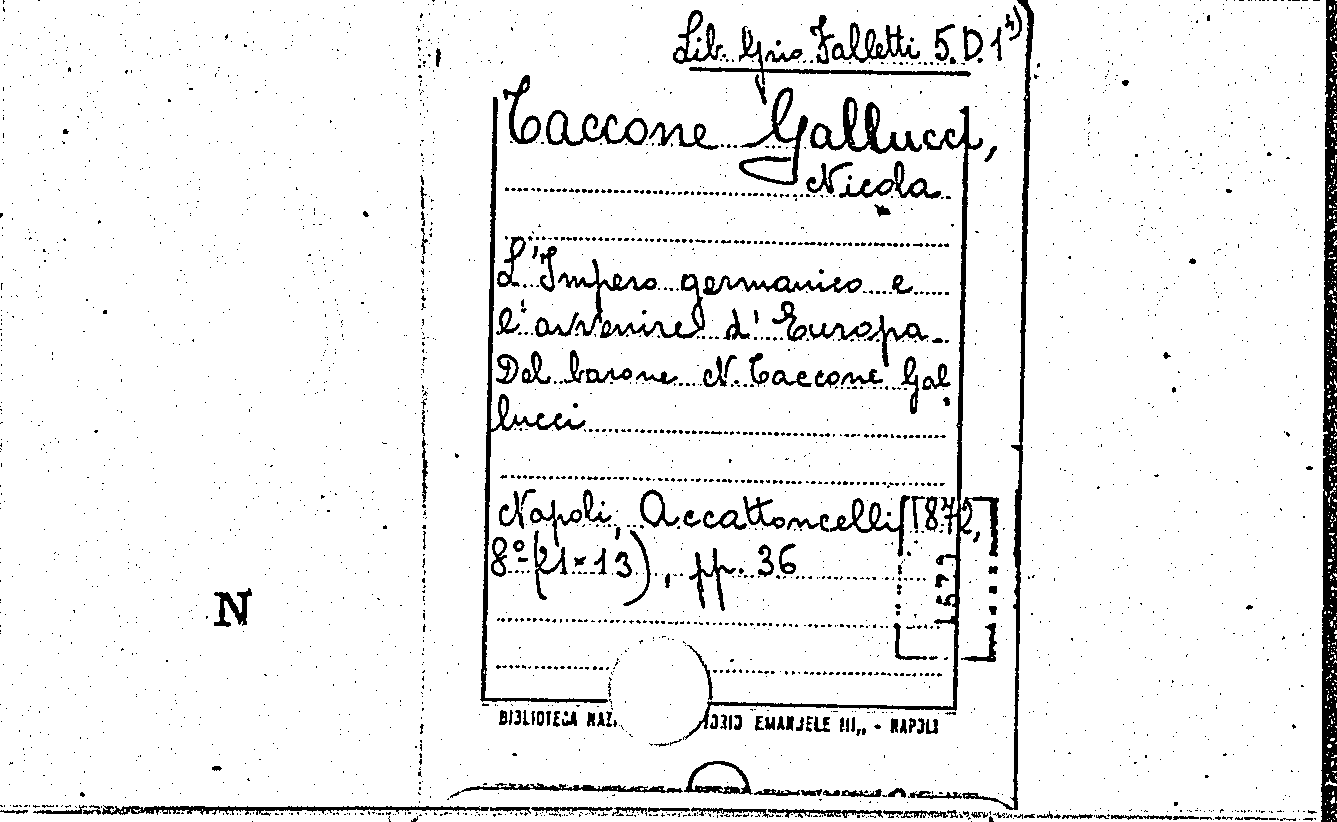 Lib. Grio Falletti 5.D.1⁴)
Taccone Gallucci,
Nicola
L'Impero germanico e
l'avvenire d'Europa.
Del barone N. Taccone Gal
lucci
Napoli, Accattoncelli, 1872,
8º (21×13), pp. 36
N
BIBLIOTECA NAZ. TORIO EMANUELE III,, - NAPOLI